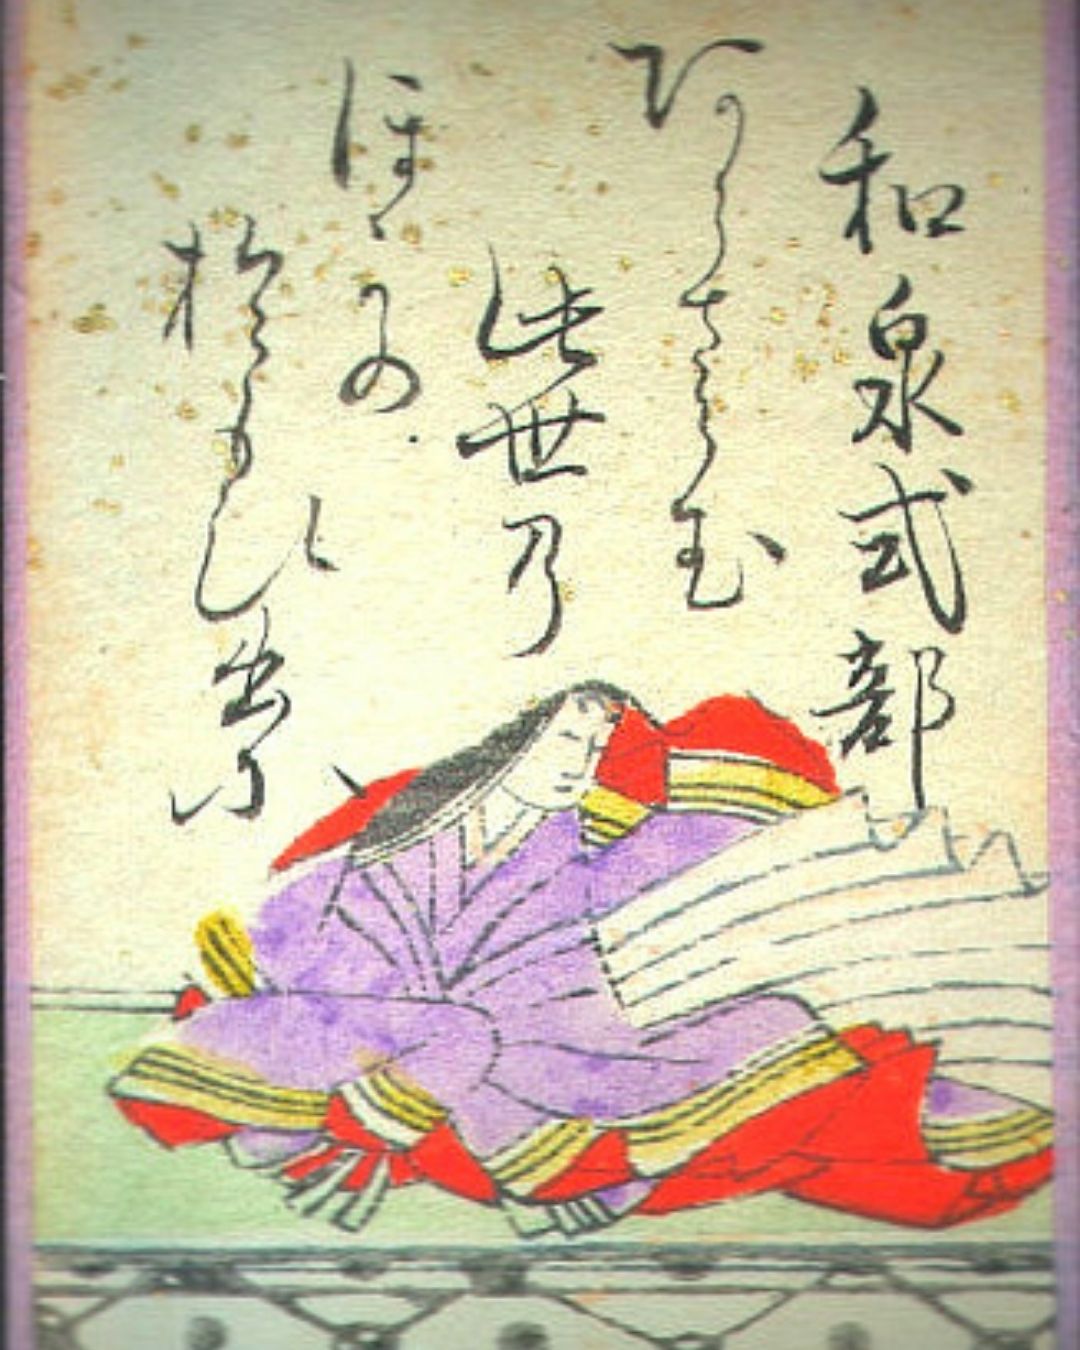 和泉式部
あらさらむ
此世乃
ほかの
於もひ出に